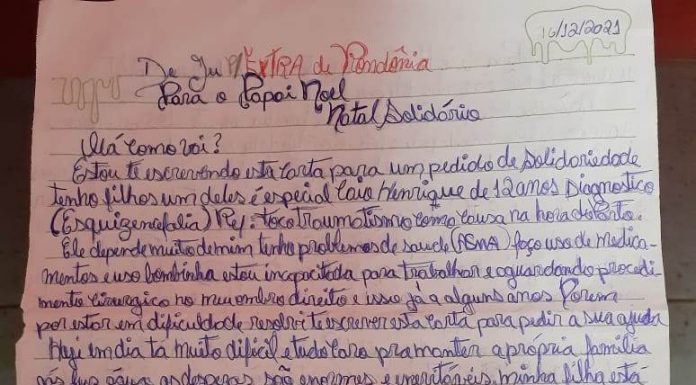 16/12/2021
De Ju EXTRA de Rondônia
Para o Papai Noel
Natal Solidário
Olá como vai?
Estou te escrevendo esta carta para um pedido de solidariedade
tenho filhos um deles é especial Caio Henrique de 12 anos Diagnostico
(Esquizencefalia) Ref: tocotraumatismo como causa na hora do Parto.
Ele depende muito de mim tenho problemas de saude (ASMA) faço uso de medica-
mentos e uso bombinha estou incapacitada para trabalhar e aguardando procedi-
mento cirurgico no meu ombro direito e isso já a alguns anos Porem
por estar em dificuldade resolvi te escrever esta carta para pedir a sua ajuda
Hoje em dia tá muito dificil e tudo caro pra manter a própria familia
luz água as despesas são enormes e inevitáveis, minha filha está